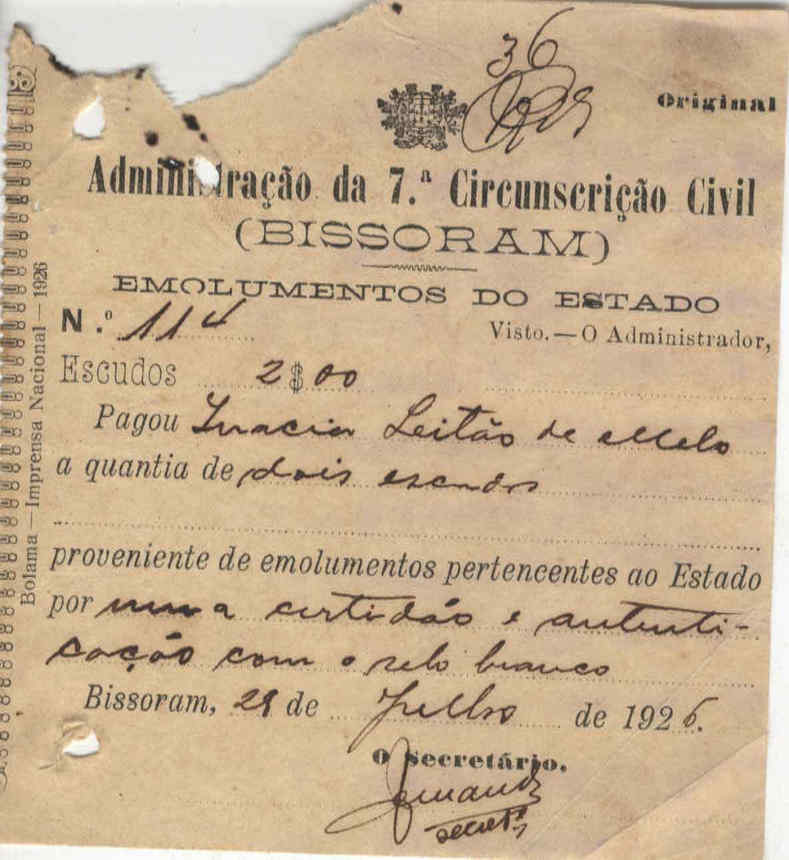 36
Original
Administração da 7.ª Circunscrição Civil
(BISSORAM)
EMOLUMENTOS DO ESTADO
N.º 114
Visto.—O Administrador,
Escudos 2$00
Pagou Inacia Leitão de Mello
a quantia de dois escudos
proveniente de emolumentos pertencentes ao Estado
por uma certidão e autenti-
cação com o selo branco
Bissoram, 29 de Julho de 1926.
O Secretário.
Bolama—Imprensa Nacional—1926